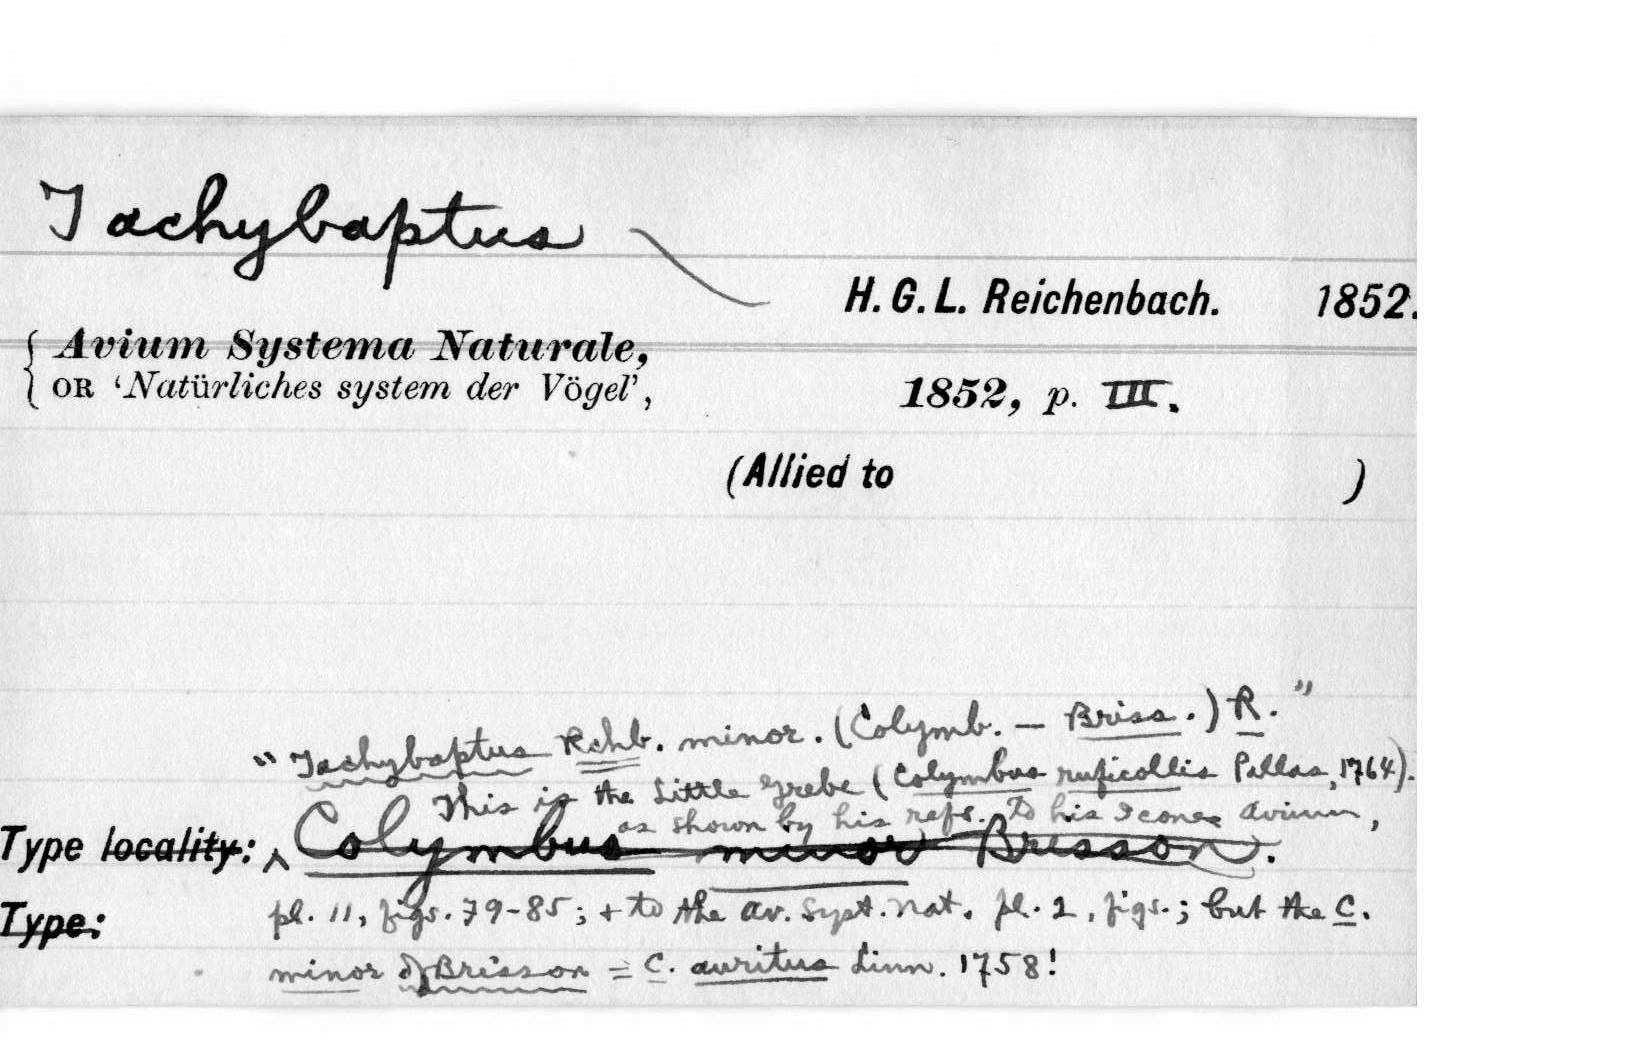 Tachybaptus
H. G. L. Reichenbach. 1852.
Avium Systema Naturale,
OR 'Natürliches system der Vögel', 1852, p. III.
(Allied to )
"Tachybaptus Rchb. minor. (Colymb. — Briss.) R."
This is the Little Grebe (Colymbus ruficollis Pallas, 1764).
as shown by his refs. to his Icones Avium,
Type locality: Colymbus minor Brisson.
Type: pl. 11, figs. 79-85; + to the Av. Syst. Nat. pl. 2, figs.; but the C.
minor of Brisson = C. auritus Linn. 1758!